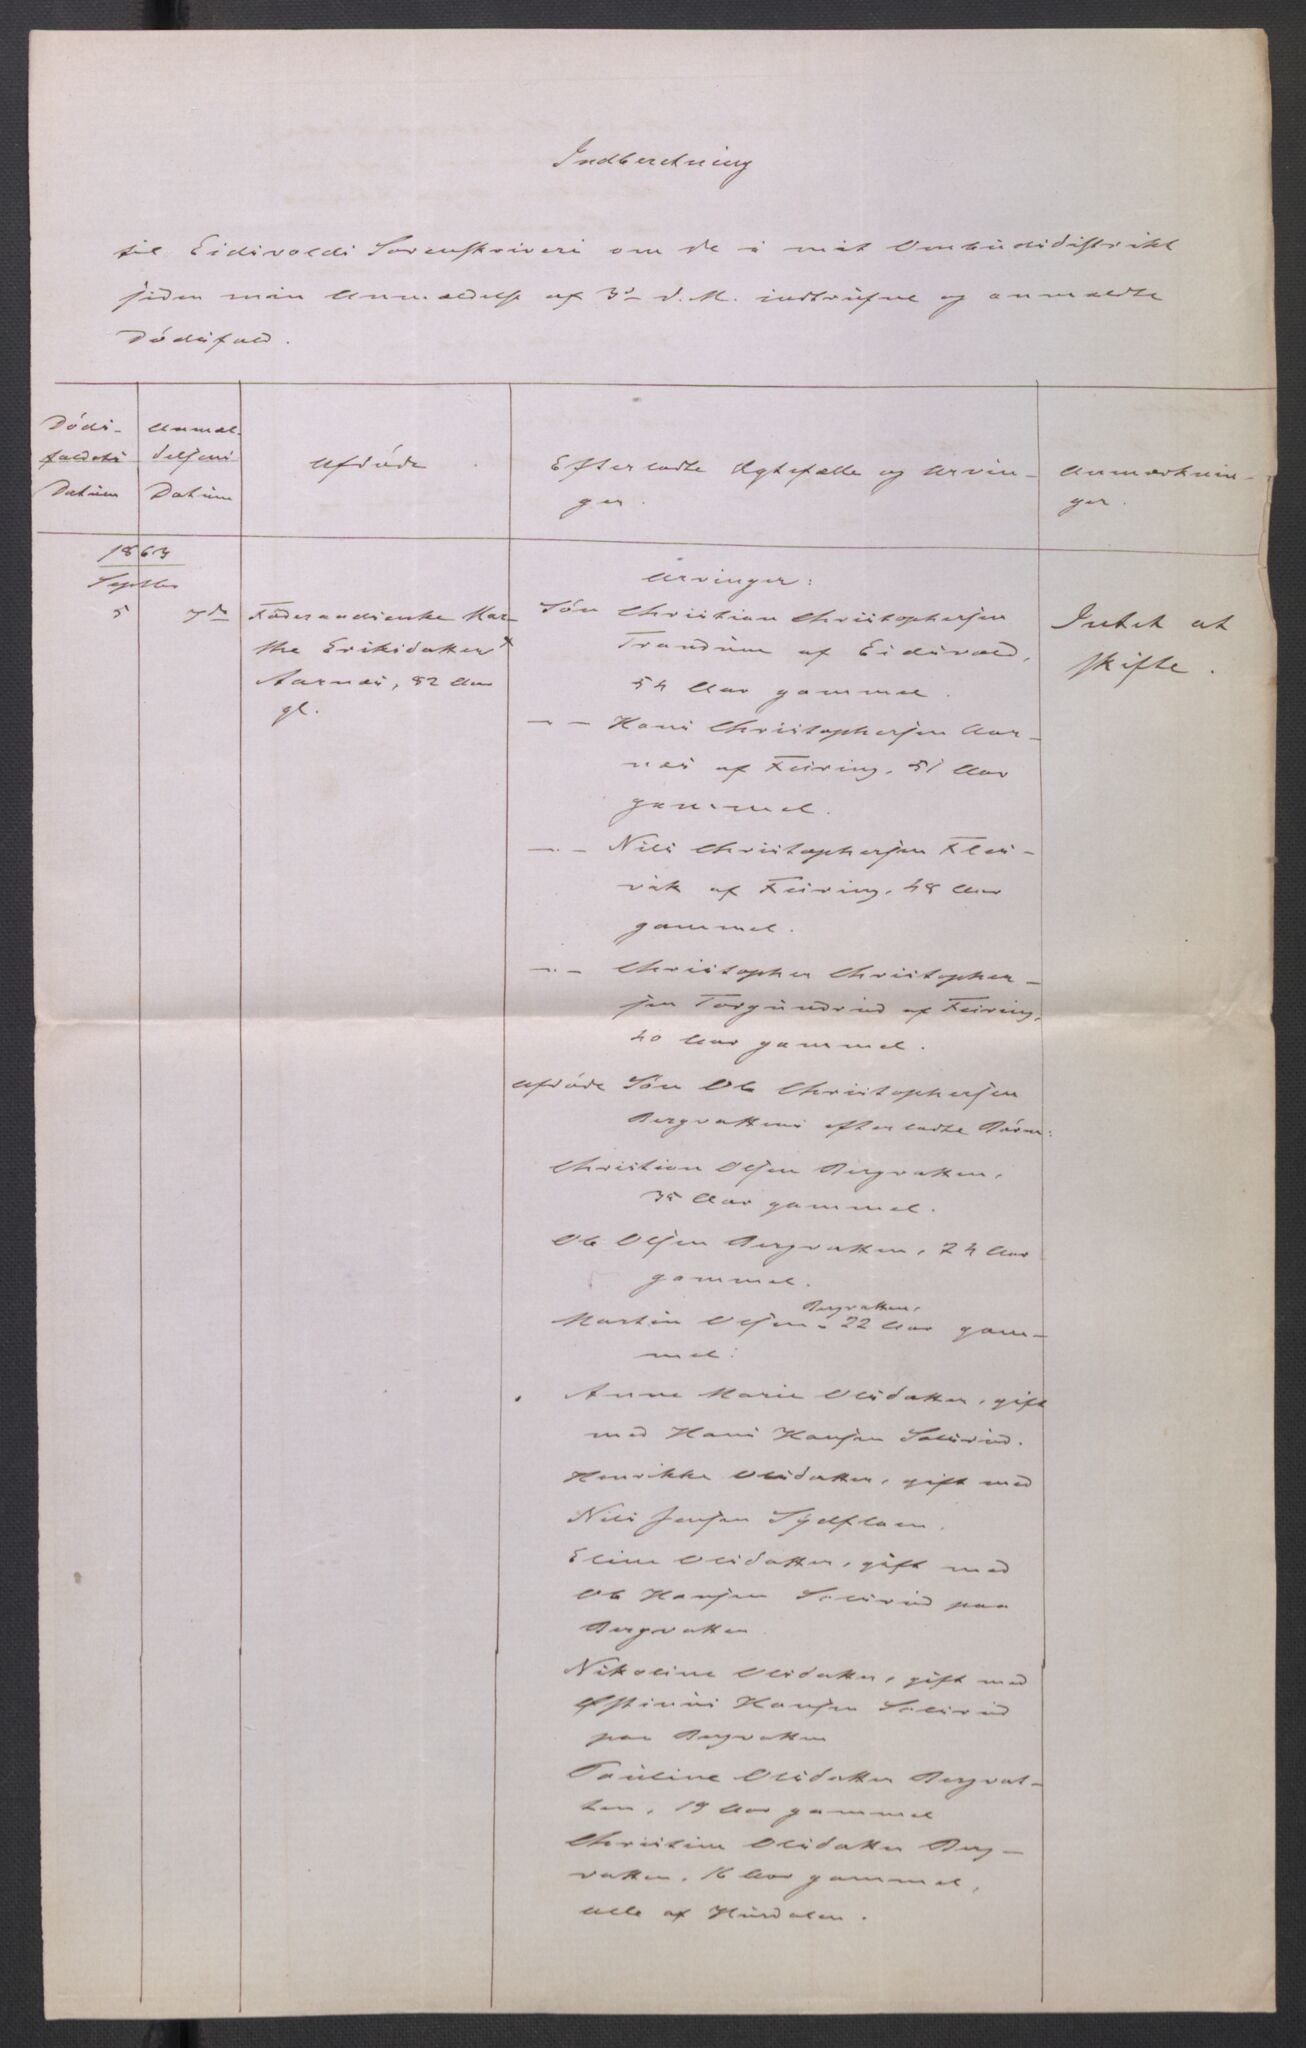 Indberetning
til Eidsvolds Sorenskriveri om de i mit Ombudsdistrikt
siden min Anmeldelse af 3die d. M. indtrufne og anmeldte
Dödsfald.
Döds-
faldets
Datum
Anmel-
delsens
Datum
Afdöde
Efterladte Ægtefælle og Arvin-
ger.
Anmærknin-
ger.
1863
Septbr
5
7de
Föderaadsenke Mar-
the Eriksdatter
Aarnæs, 82 Aar
gl.
Arvinger:
Sön Christian Christophersen
Trandum af Eidsvold,
54 Aar gammel.
— " — Hans Christophersen Aar-
næs af Feiring, 51 Aar
gammel.
— " — Nils Christophersen Fles-
vik af Feiring, 48 Aar
gammel.
— " — Christopher Christopher-
sen Torgundrud af Feiring,
40 Aar gammel.
Afdöde Sön Ole Christophersen
Bergvattens efterladte Börn:
Christian Olsen Bergvatten,
35 Aar gammel.
Ole Olsen Bergvatten, 24 Aar
gammel.
Bergvatten,
Martin Olsen 22 Aar gam-
mel.
Anne Marie Olsdatter, gift
med Hans Hansen Solsrud.
Henrikke Olsdatter, gift med
Nils Jensen Sydflaen.
Eline Olsdatter, gift med
Ole Hansen Solsrud paa
Bergvatten
Nikoline Olsdatter, gift med
Hansen Solsrud
paa Bergvatten
Pauline Olsdatter Bergvat-
ten, 19 Aar gammel
Christine Olsdatter Berg-
vatten, 16 Aar gammel,
alle af Hurdalen.
Intet at
skifte.